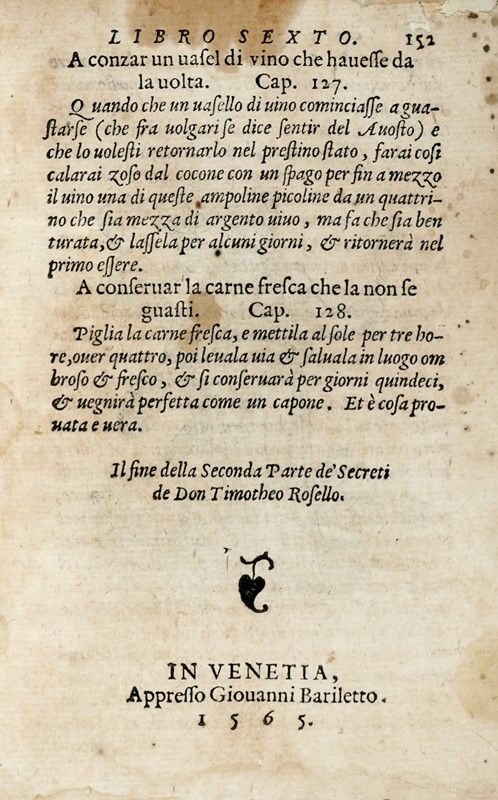 LIBRO SEXTO. 152
A conzar un uaſel di vino che haueſſe da
la uolta. Cap. 127.
Quando che un uaſello di uino cominciaſſe a gua-
ſtarſe (che fra uolgari ſe dice ſentir del Auoſto) e
che lo uoleſti retornarlo nel preſtino ſtato, farai coſi
calarai zoſo dal cocone con un ſpago per fin a mezzo
il uino una di queſte ampoline picoline da un quattri-
no che ſia mezza di argento uiuo, ma fa che ſia ben
turata, & laſſela per alcuni giorni, & ritornerà nel
primo eſſere.
A conſeruar la carne freſca che la non ſe
guaſti. Cap. 128.
Piglia la carne freſca, e mettila al ſole per tre ho-
re, ouer quattro, poi leuala uia & ſaluala in luogo om
broſo & freſco, & ſi conſeruarà per giorni quindeci,
& uegnirà perfetta come un capone. Et è coſa pro-
uata e uera.
Il fine della Seconda Parte de' Secreti
de Don Timotheo Roſello.
IN VENETIA,
Appreſſo Giouanni Bariletto.
1565.